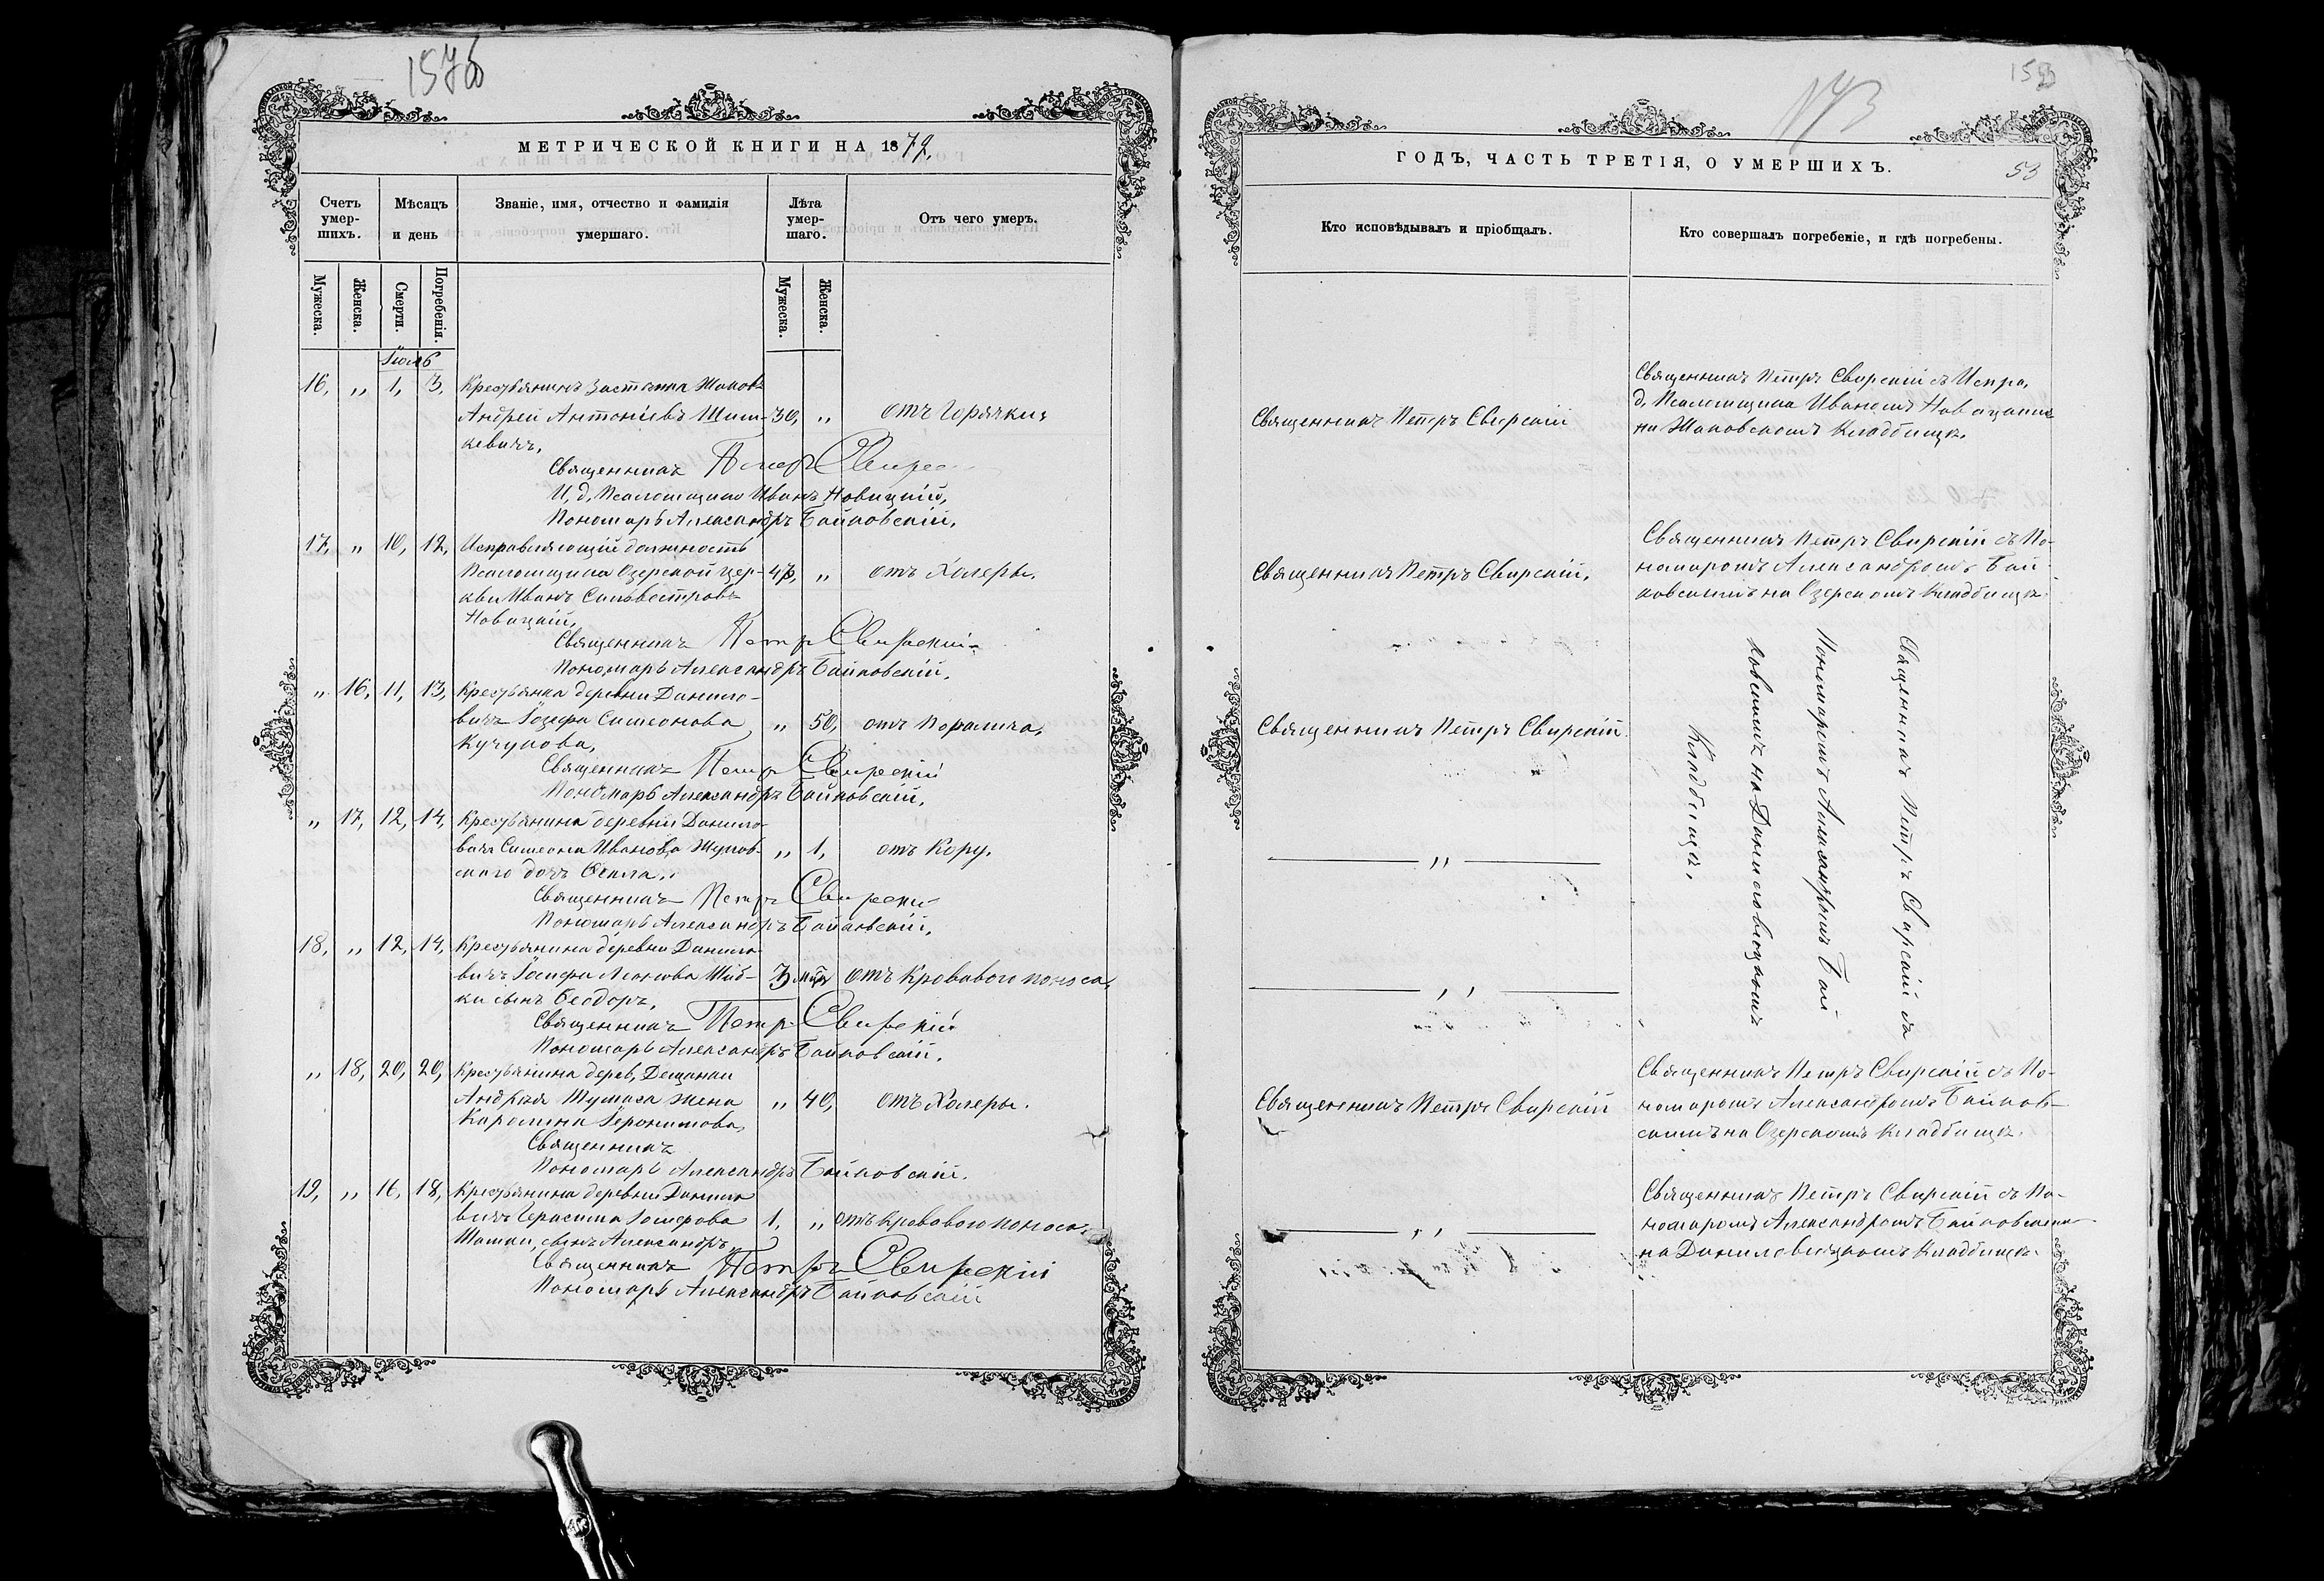 157об
МЕТРИЧЕСКОЙ КНИГИ НА 1872,
Счетъ умер-шихъ.
Мѣсяцъ и день
Званіе, имя, отчество и фамилія умершаго.
Лѣта умер-шаго.
Отъ чего умеръ.
Мужеска.
Женска.
Смерти.
Погребенія.
Мужеска.
Женска.
Іюль
16, „ 1, 3, Крестьянинъ застѣнка
Андрей Антоніевъ Шим- 30, „ отъ Горячки,
кевичъ,
Священникъ Петръ Свирскій
И, д, Псаломщика Иванъ Новицкій,
Пономарь Александръ Байковскій,
17, „ 10, 12, Исправляющій должность
Псаломщика Озерской цер- 47, „ отъ Холеры.
кви Иванъ Сильвестровъ
Новицкій,
Священникъ Петръ Свирскій
Пономарь Александръ Байковскій,
„ 16, 11, 13, Крестьянка деревни Данило-
вичъ Іозефа Симеонова „ 50, отъ Поралича,
Кучунова,
Священникъ Петръ Свирскій
Пономарь Александръ Байковскій,
„ 17, 12, 14, Крестьянина деревни Данило-
вичъ Симеона Иванова „ 1, отъ Кору,
скаго дочь Ѳекла,
Священникъ Петръ Свирскій
Пономарь Александръ Байковскій,
18, „ 12, 14, Крестьянина деревни Данило-
вичъ Іосифа Леонова Шиб- 3 отъ Кроваваго поноса,
ки сынъ Ѳеодоръ,
Священникъ Петръ Свирскій
Пономарь Александръ Байковскій,
„ 18, 20, 20, Крестьянина дерев,
Андрея жена „ 40, отъ Холеры.
Каролина Іеронимова,
Священникъ
Пономарь Александръ Байковскій,
19, „ 16, 18, Крестьянина деревни Данило
вичъ Герасима 1, „ отъ кроваваго поноса,
сынъ Александръ,
Священникъ Петръ Свирскій
Пономарь Александръ Байковскій
173
53
ГОДЪ, ЧАСТЬ ТРЕТІЯ, О УМЕРШИХЪ.
Кто исповѣдывалъ и пріобщалъ.
Кто совершалъ погребеніе, и гдѣ погребены.
Священникъ Петръ Свирскій
Священникъ Петръ Свирскій съ Испра,
д, Псаломщика Иваномъ Новицкимъ
на Жаковскомъ Кладбищѣ,
Священникъ Петръ Свирскій,
Священникъ Петръ Свирскій съ По-
номаромъ Александромъ Бай-
ковскимъ на Озерскомъ Кладбищѣ.
Священникъ Петръ Свирскій
„
„
Священникъ Петръ Свирскій съ
Пономаромъ Александромъ Бай
ковскимъ на Даниловицкомъ
Кладбищѣ,
Священникъ Петръ Свирскій
Священникъ Петръ Свирскій съ По-
номаромъ Александромъ Байков-
скимъ на Озерскомъ кладбищѣ.
„
Священникъ Петръ Свирскій съ По-
номаромъ Александромъ Байковскимъ
на Даниловицкомъ Кладбищѣ.